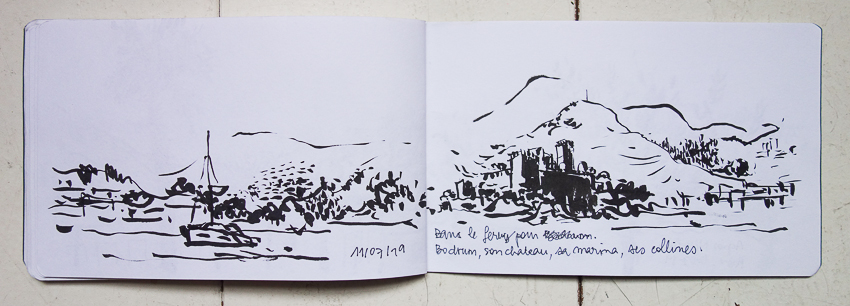 11/07/19
Dans le ferry pour
Bodrum, son château, sa marina, ses collines.